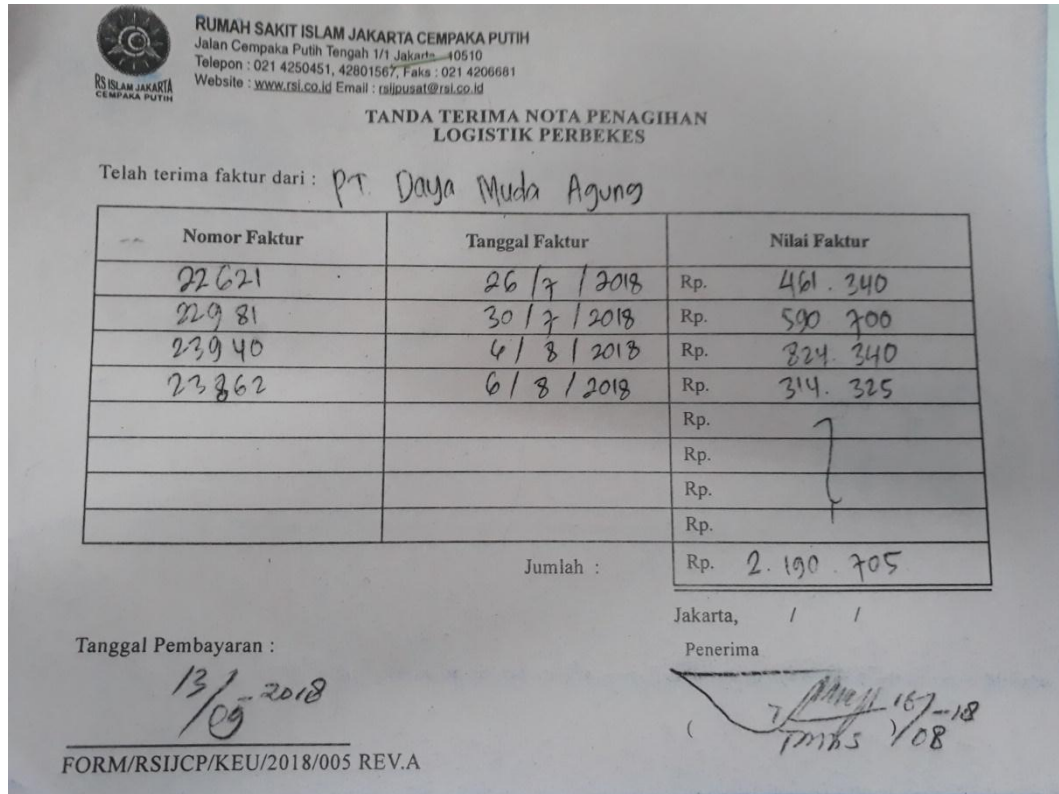 RUMAH SAKIT ISLAM JAKARTA CEMPAKA PUTIH
Jalan Cempaka Putih Tengah 1/1 Jakarta 10510
Telepon : 021 4250451, 42801567, Faks : 021 4206681
Website : www.rsi.co.id Email : rsijpusat@rsi.co.id
RS ISLAM JAKARTA
CEMPAKA PUTIH
TANDA TERIMA NOTA PENAGIHAN
LOGISTIK PERBEKES
Telah terima faktur dari : PT. Daya Muda Agung
Nomor Faktur Tanggal Faktur Nilai Faktur
22621 26/7/2018 Rp. 461.340
22981 30/7/2018 Rp. 590 700
23940 6/8/2018 Rp. 824.340
23862 6/8/2018 Rp. 314.325
Rp.
Rp.
Rp.
Rp.
Jumlah : Rp. 2.190.705
Jakarta, / /
Tanggal Pembayaran : Penerima
13/09-2018
( ) 08
FORM/RSIJCP/KEU/2018/005 REV.A